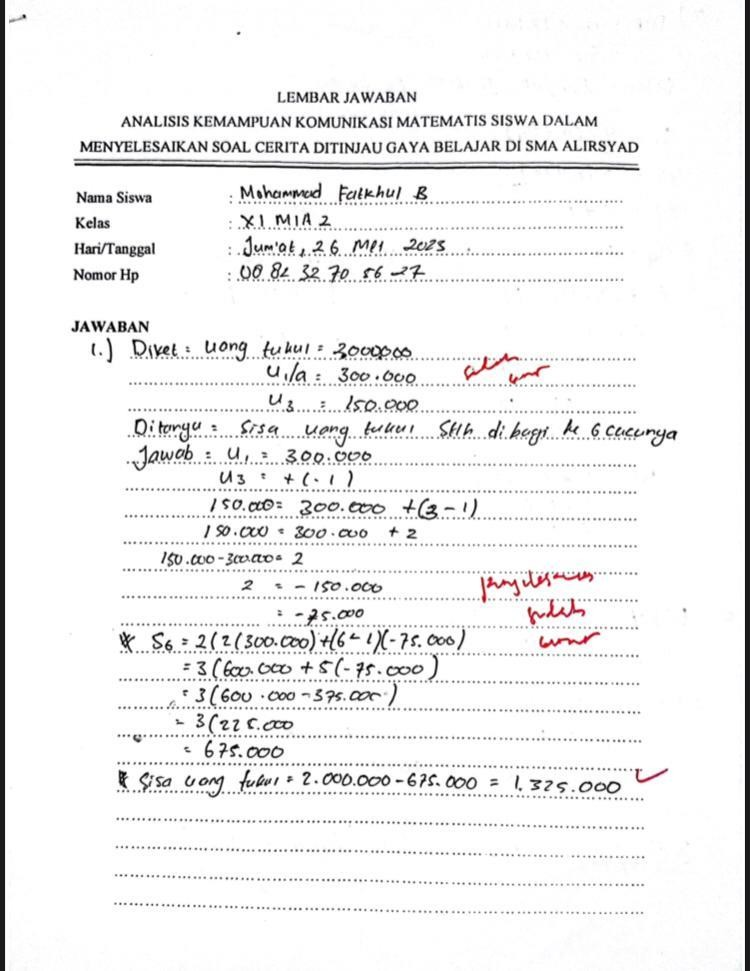 LEMBAR JAWABAN
ANALISIS KEMAMPUAN KOMUNIKASI MATEMATIS SISWA DALAM
MENYELESAIKAN SOAL CERITA DITINJAU GAYA BELAJAR DI SMA ALIRSYAD
Nama Siswa : Mohammad Fatkhul B
Kelas : XI MIA 2
Hari/Tanggal : Jum'at, 26 Mei 2023
Nomor Hp : 08 82 32 70 56 -27
JAWABAN
1.) Diket : Uang tukul = 2000000
U1/a = 300.000
U3 = 150.000
Ditanya = Sisa uang tukul Stlh di bagi ke 6 cucunya
Jawab = U1 = 300.000
U3 = +(-1)
150.000 = 300.000 +(3-1)
150.000 = 300.000 + 2
150.000-300.000= 2
2 = -150.000
= -75.000
* S6 = 2(2(300.000)+(6-1)(-75.000)
= 3(600.000 + 5(-75.000)
= 3(600.000-375.000)
= 3(225.000
= 675.000
* Sisa uang tukul = 2.000.000-675.000 = 1.325.000